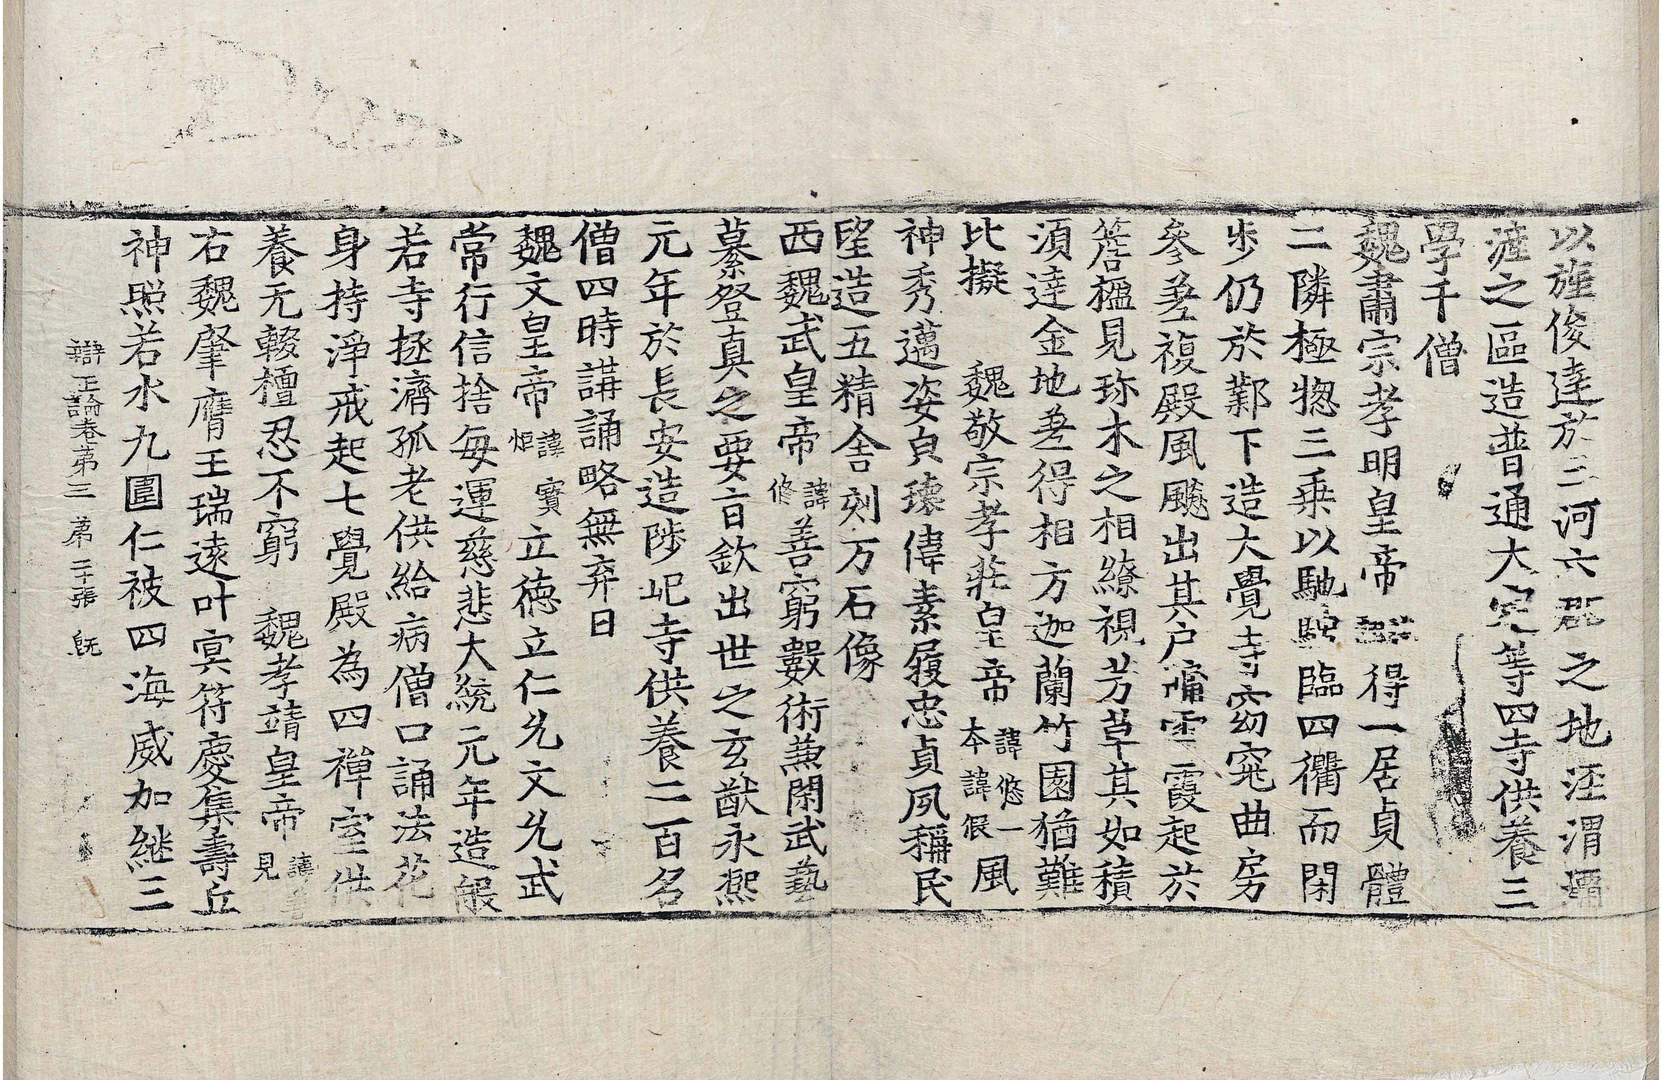 以旌俊達於三河六郡之地涇渭壖
漼之區造普通大定等四寺供養三
學千僧
魏肅宗孝明皇帝 得一居貞體
二隣極惣三乗以馳騁臨四衢而閑
步仍於鄴下造大覺寺窈窕曲房
參差複殿風飈出其戶牖雲霞起於
簷楹見珎木之相繚視芳草其如積
湏達金地差得相方迦蘭竹園猶難
比擬 魏敬宗孝莊皇帝 諱悠一本諱假 風
神秀邁姿皃瓌偉素履忠貞夙稱民
望造五精舍刻万石像
西魏武皇帝 諱脩 善窮數術兼閑武藝
慕登真之要言欽出世之玄猷永熙
元年於長安造陟屺寺供養二百名
僧四時講誦略無弃日
魏文皇帝 諱寶炬 立德立仁允文允武
常行信捨每運慈悲大統元年造般
若寺拯濟孤老供給病僧口誦法花
身持淨戒起七覺殿為四禪室供
養无輟檀忍不窮 魏孝靖皇帝 諱善見
右魏肇膺王瑞遠叶冥符慶集壽丘
神照若水九圍仁被四海威加継三
辯正論卷第三 第二十張 既